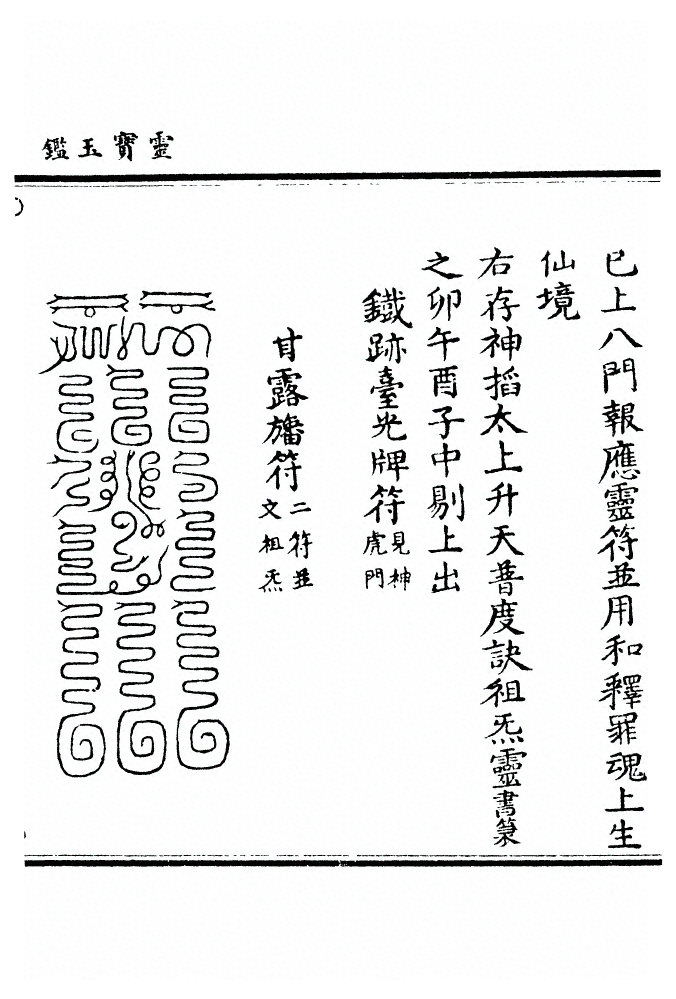 靈寶玉鑑
已上八門報應靈符並用和釋罪魂上生
仙境
右存神搯太上升天普度訣祖炁靈書篆
之卯午酉子中剔上出
鐵跡臺光牌符見神
虎門
甘露旛符二符並
文祖炁